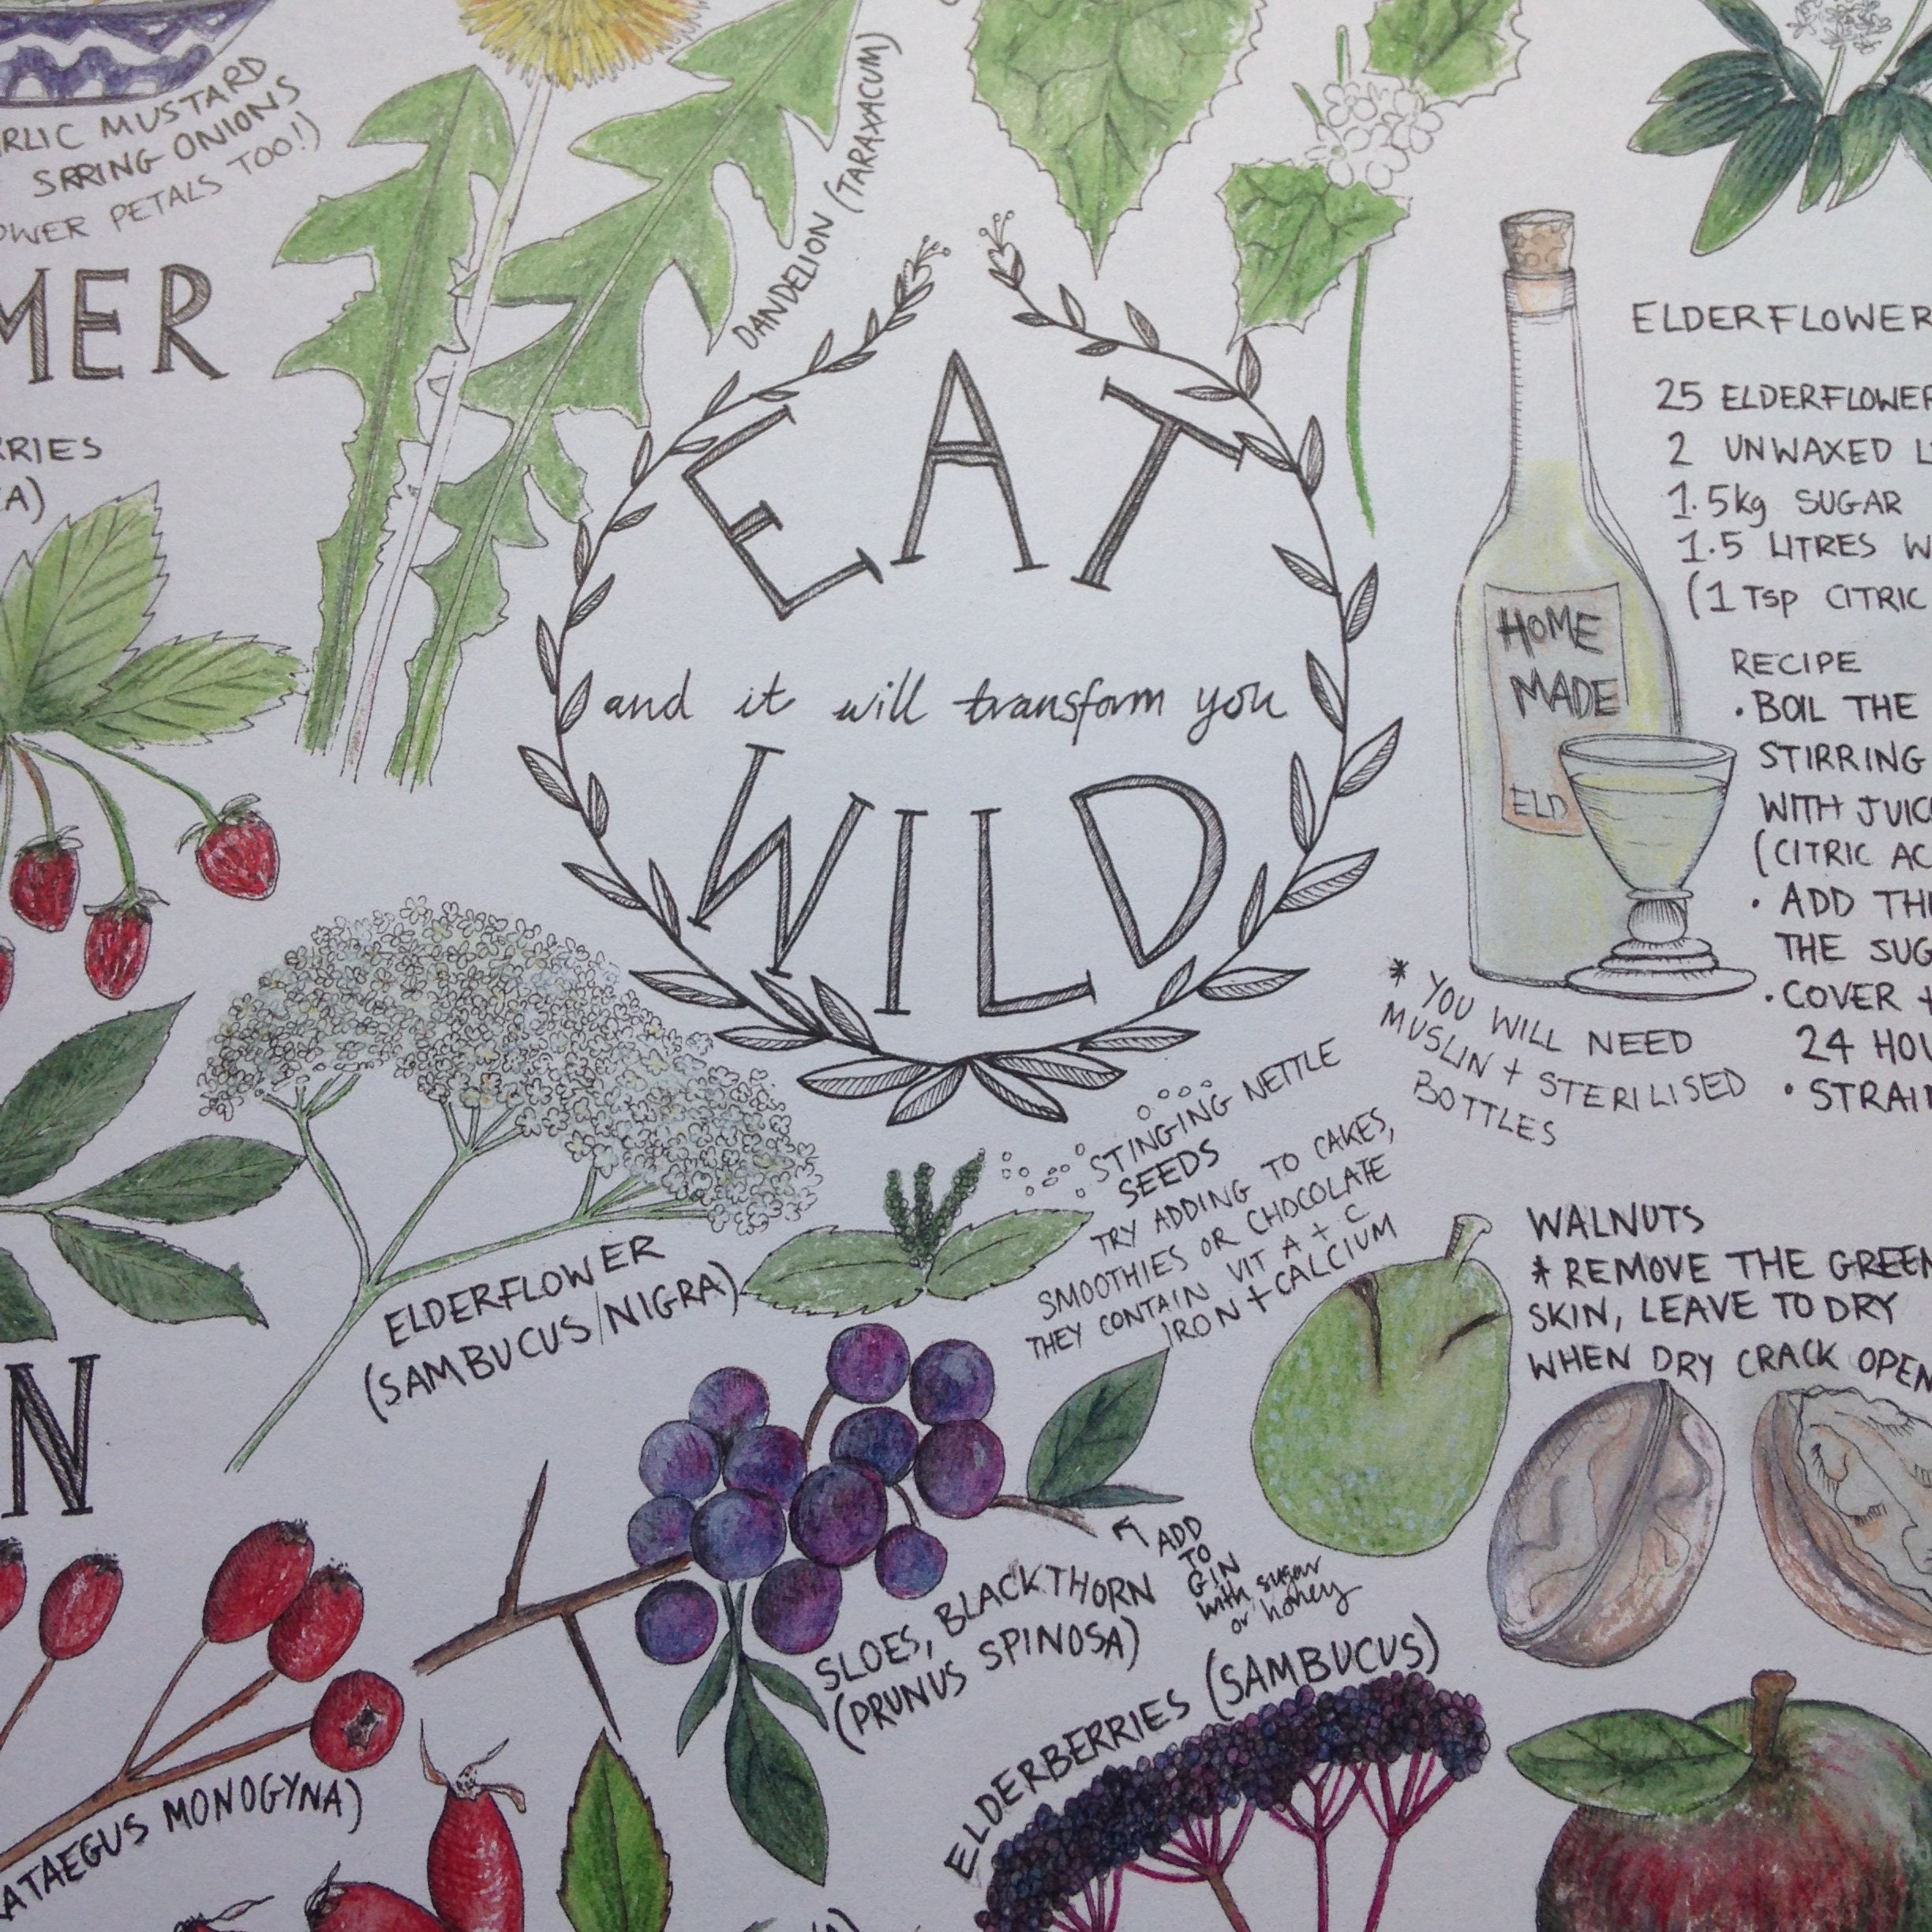 RLIC MUSTARD
SRRING ONIONS
OWER PETALS TOO!)
MER
RRIES
A)
DANDELION (TARAXACUM)
EAT
and it will transform you
WILD
ELDERFLOWER
25 ELDERFLOWER
2 UNWAXED L
1.5kg SUGAR
1.5 LITRES W
(1 Tsp CITRIC
RECIPE
• BOIL THE
STIRRING
WITH JUIC
(CITRIC AC
• ADD THE
THE SUG
• COVER +
24 HOU
• STRAI
HOME
MADE
ELD
* YOU WILL NEED
MUSLIN + STERILISED
BOTTLES
STINGING NETTLE
SEEDS
TRY ADDING TO CAKES,
SMOOTHIES OR CHOCOLATE
THEY CONTAIN VIT A + C
IRON + CALCIUM
ELDERFLOWER
(SAMBUCUS/NIGRA)
WALNUTS
* REMOVE THE GREEN
SKIN, LEAVE TO DRY
WHEN DRY CRACK OPEN
N
ADD
TO
GIN
with sugar
or honey
SLOES, BLACKTHORN
(PRUNUS SPINOSA)
ELDERBERRIES (SAMBUCUS)
ATAEGUS MONOGYNA)